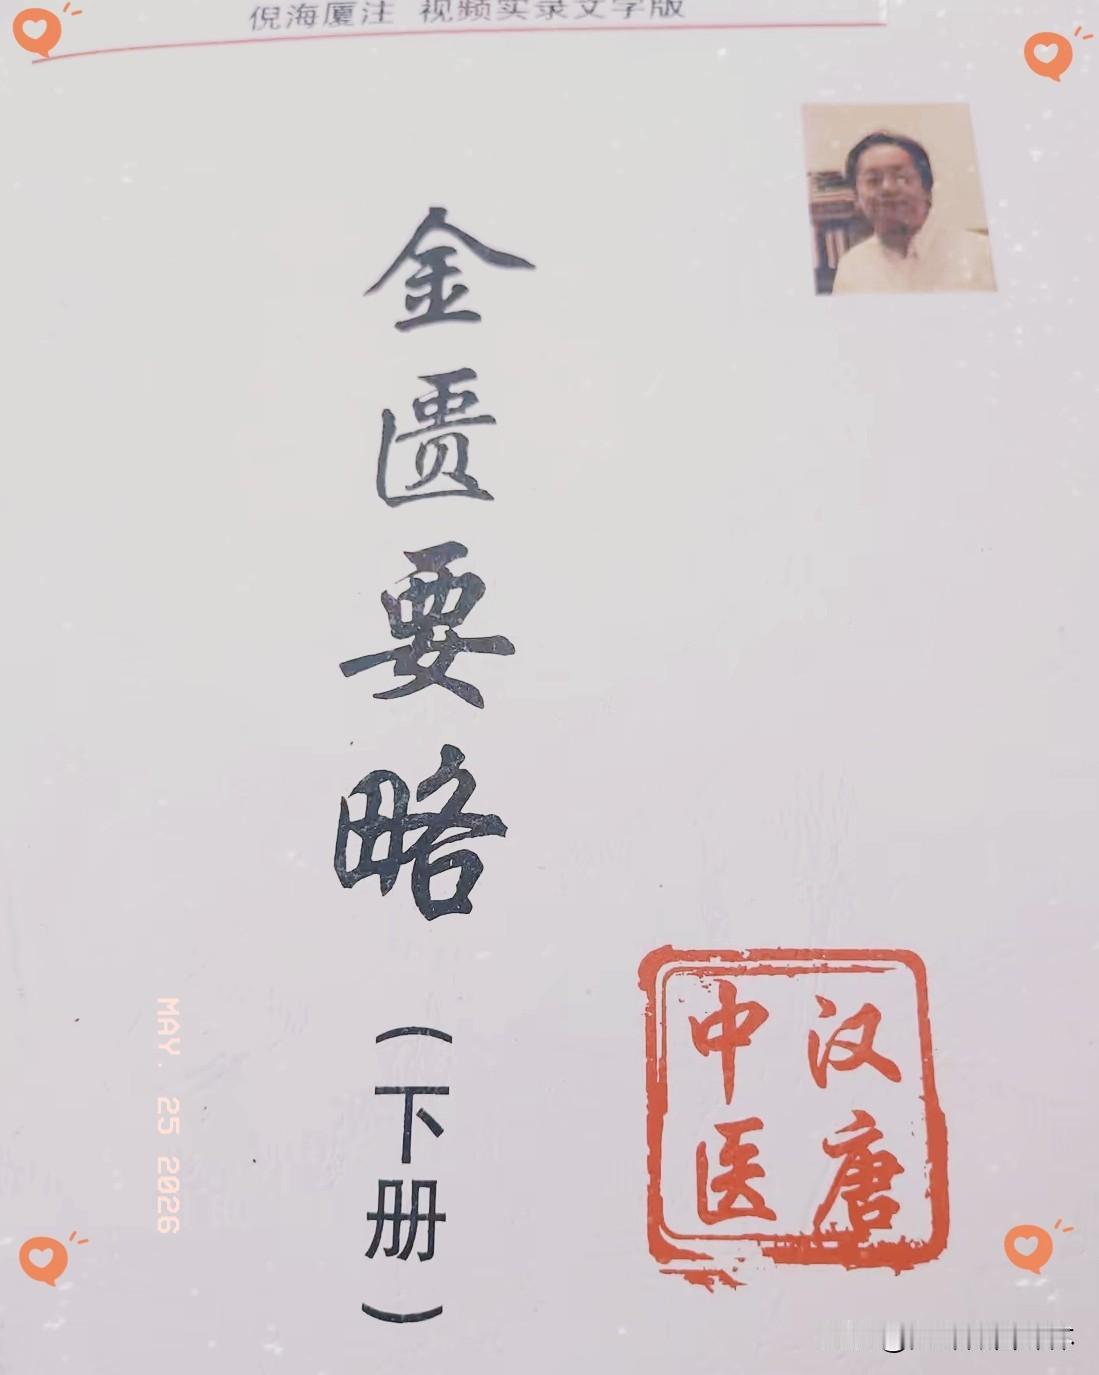 倪海厦注 视频实录文字版
金匮要略
（下册）
汉唐
中医
MAY. 25 2026